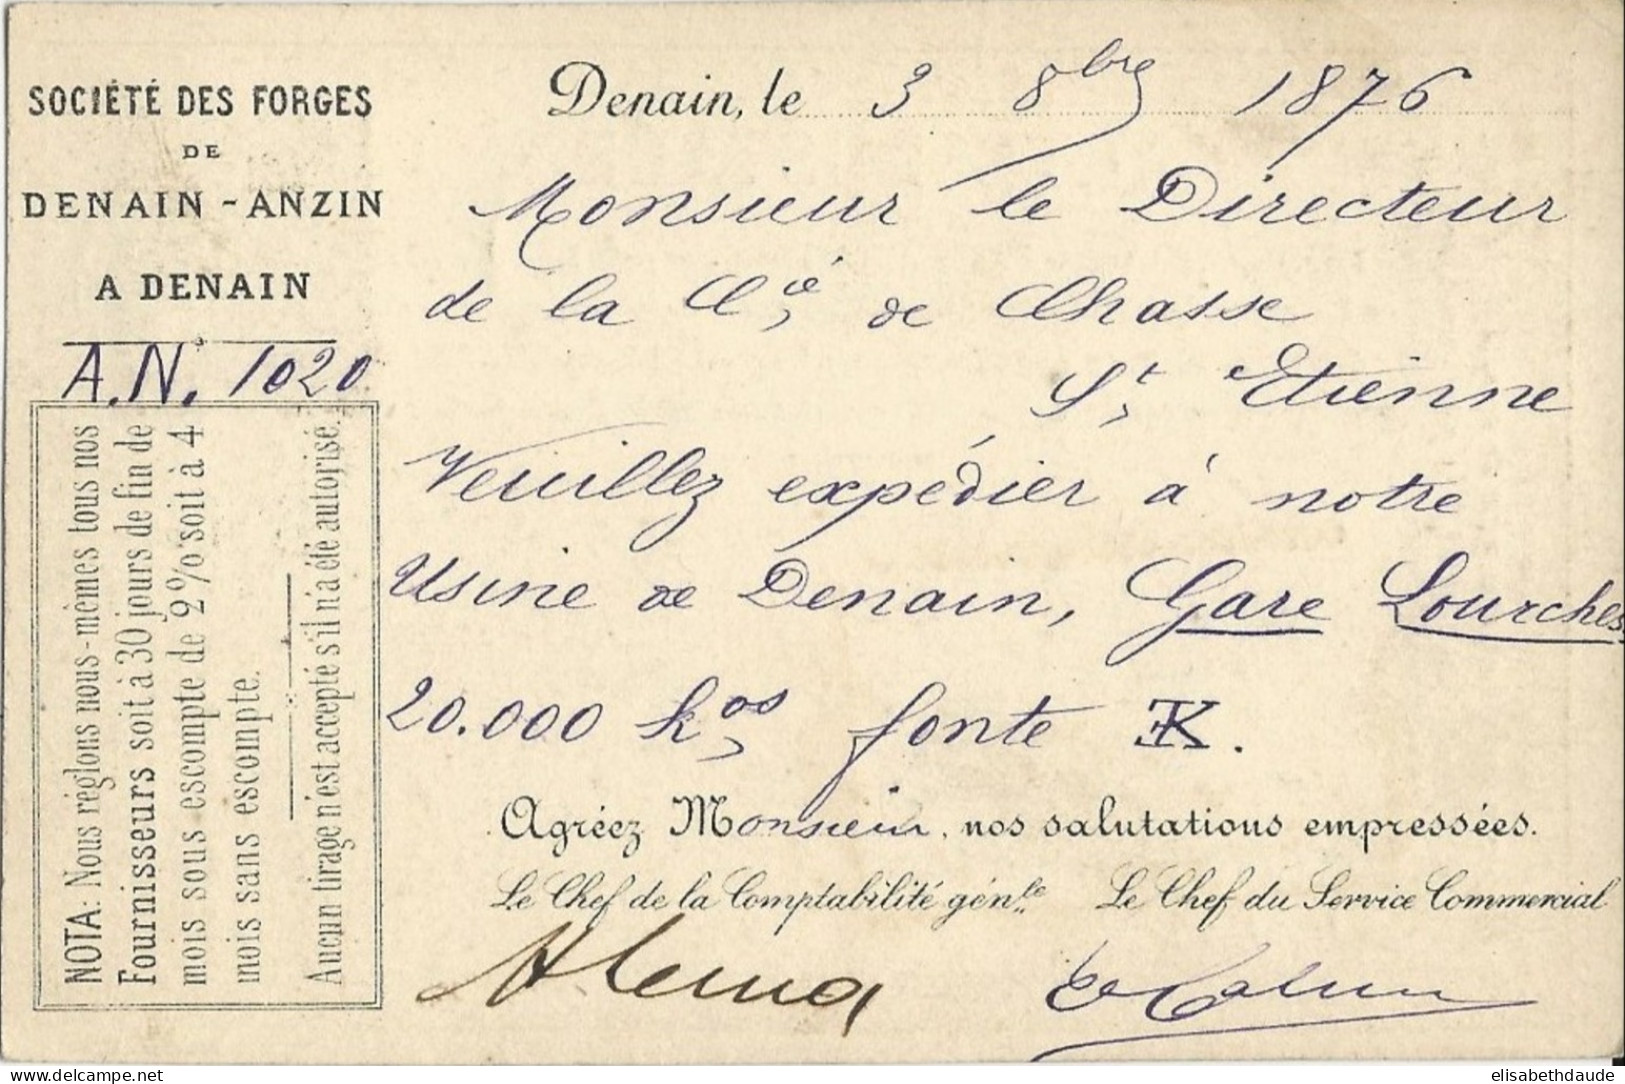 SOCIÉTÉ DES FORGES
DE
DENAIN - ANZIN
A DENAIN
A.N. 1020
NOTA: Nous réglons nous-mêmes tous nos
Fournisseurs soit à 30 jours de fin de
mois sous escompte de 2% soit à 4
mois sans escompte.
Aucun tirage n'est accepté s'il n'a été autorisé.
Denain, le 3 8bre 1876
Monsieur le Directeur
de la Cié de Chasse
St Etienne
Veuillez expédier à notre
Usine de Denain, Gare Lourches
20.000 kos fonte
Agréez Monsieur, nos salutations empressées.
Le Chef de la Comptabilité génle Le Chef du Service Commercial
delcampe.net
elisabethdaude